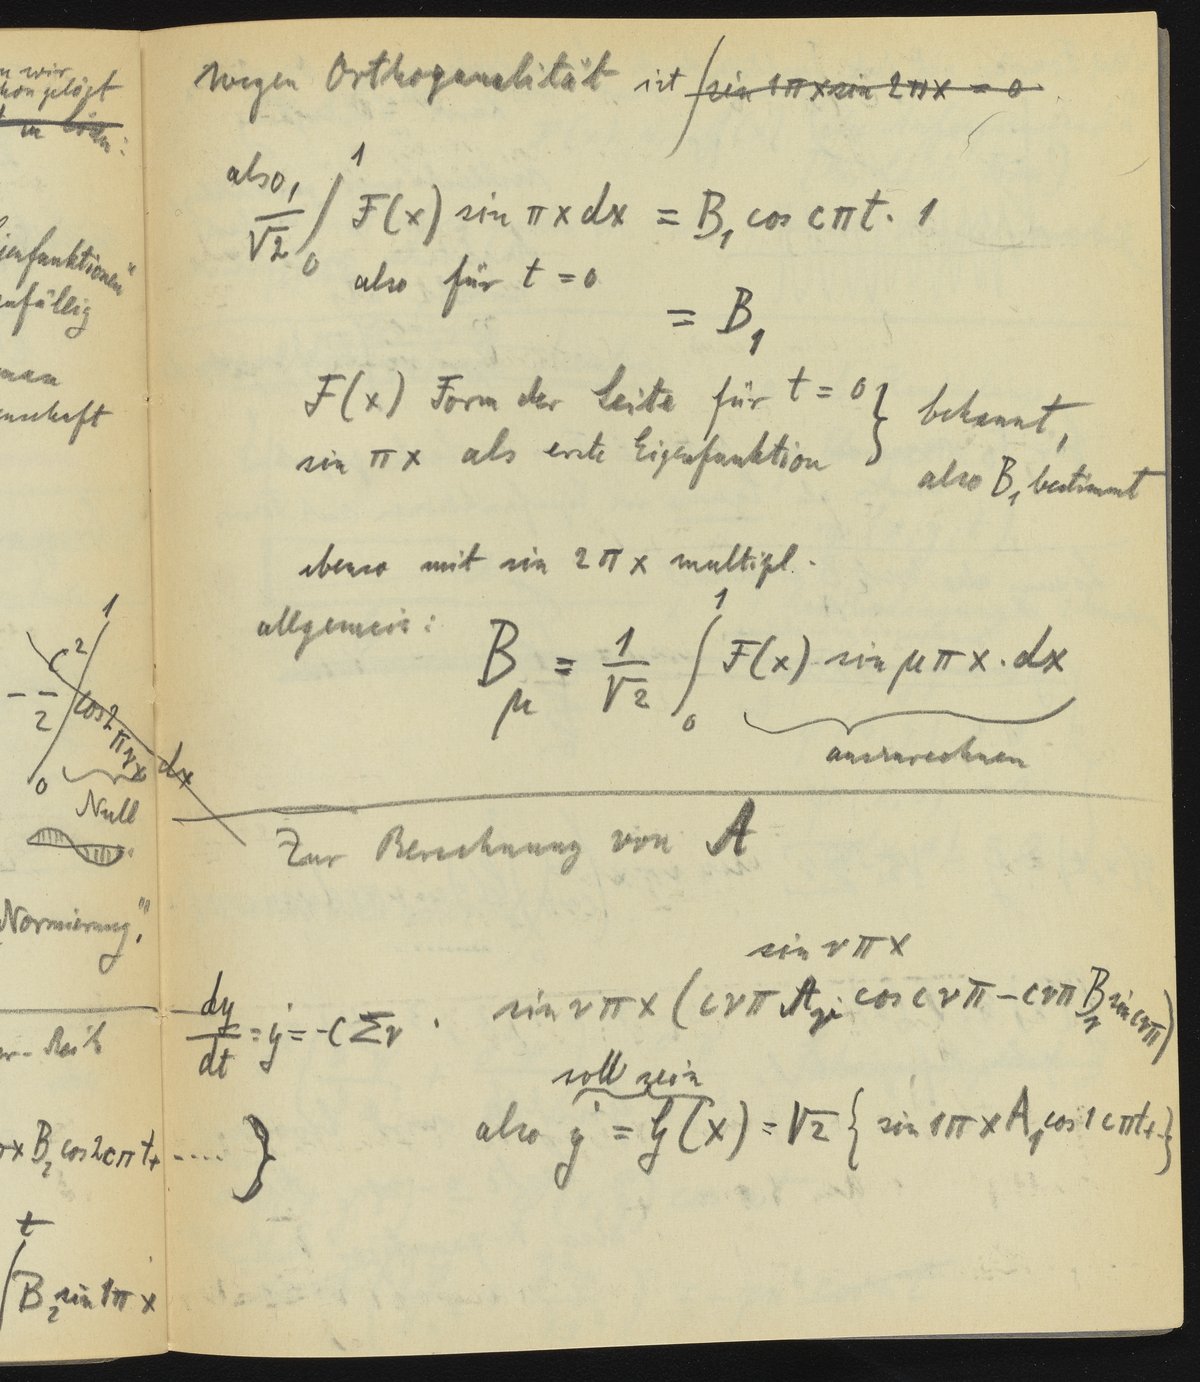 n wir
schon gelöst
t zu lösen:
Eigenfunktionen"
zufällig
man
enschaft
c² 1
- — ∫ cos 2πνx dx
2 0
Null
Normierung".
er-Reih
x B₂ cos 2cπt + .... }
t
∫ B₂ sin 1π x
wegen Orthogonalität ist ∫ sin 1πx sin 2πx = 0
also 1/√2 ∫₀¹ F(x) sin πx dx = B₁ cos cπt · 1
also für t = 0
= B₁
F(x) Form der Seite für t = 0 } bekannt,
sin πx als erste Eigenfunktion } also B₁ bestimmt
ebenso mit sin 2πx multipl.
allgemein: B_μ = 1/√2 ∫₀¹ F(x) sin μπx · dx
auszurechnen
Zur Berechnung von A
sin νπx
dy/dt = ẏ = -c Σν · sin νπx (cνπ A cos cνπ - cνπ B_ν sin cνπ)
soll sein
also ẏ = G(x) = √2 { sin 1πx A₁ cos 1cπt + }